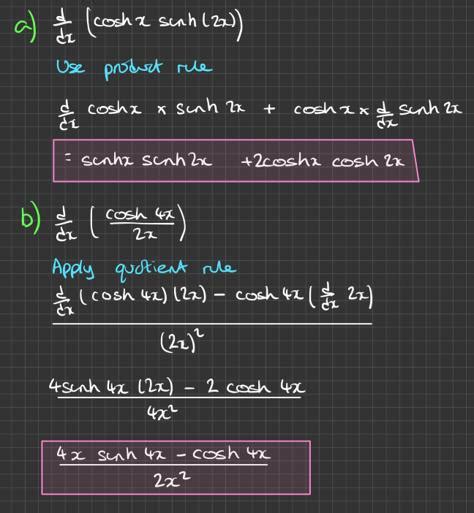 a) d/dx (cosh x sinh (2x))
Use product rule
d/dx cosh x × sinh 2x + cosh x × d/dx sinh 2x
= sinhx sinh2x +2coshx cosh 2x
b) d/dx (cosh 4x / 2x)
Apply quotient rule
d/dx (cosh 4x) (2x) − cosh 4x (d/dx 2x)
(2x)²
4sinh 4x (2x) − 2 cosh 4x
4x²
4x sinh 4x − cosh 4x
2x²